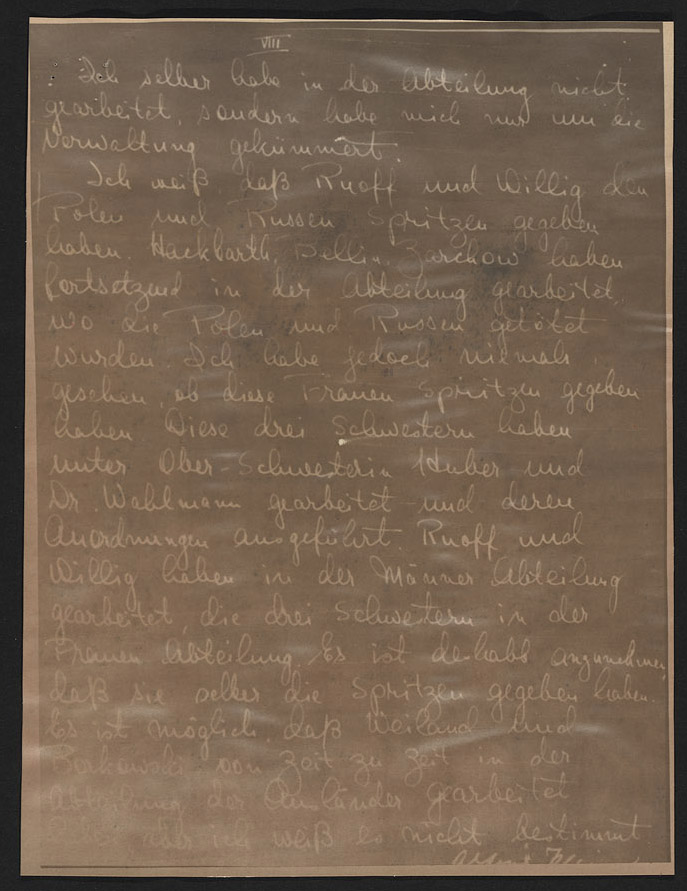 VIII
Ich selber habe in der Abteilung nicht
gearbeitet, sondern habe mich nur um die
Verwaltung gekümmert.
Ich weiß, daß Ruoff und Willig den
Polen und Russen Spritzen gegeben
haben. Hackbarth, Bellin, Zarchow haben
fortsetzend in der Abteilung gearbeitet,
wo die Polen und Russen getötet
wurden. Ich habe jedoch niemals
gesehen, ob diese Frauen Spritzen gegeben
haben Diese drei Schwestern haben
unter Ober-Schwesterin Huber und
Dr. Wahlmann gearbeitet und deren
Anordnungen ausgeführt. Ruoff und
Willig haben in der Männer Abteilung
gearbeitet, die drei Schwestern in der
Frauen Abteilung. Es ist deshalb anzunehmen,
daß sie selber die Spritzen gegeben haben.
Es ist möglich, daß Weiland und
Borkowski von Zeit zu Zeit in der
Abteilung der Ausländer gearbeitet
aber ich weiß es nicht bestimmt